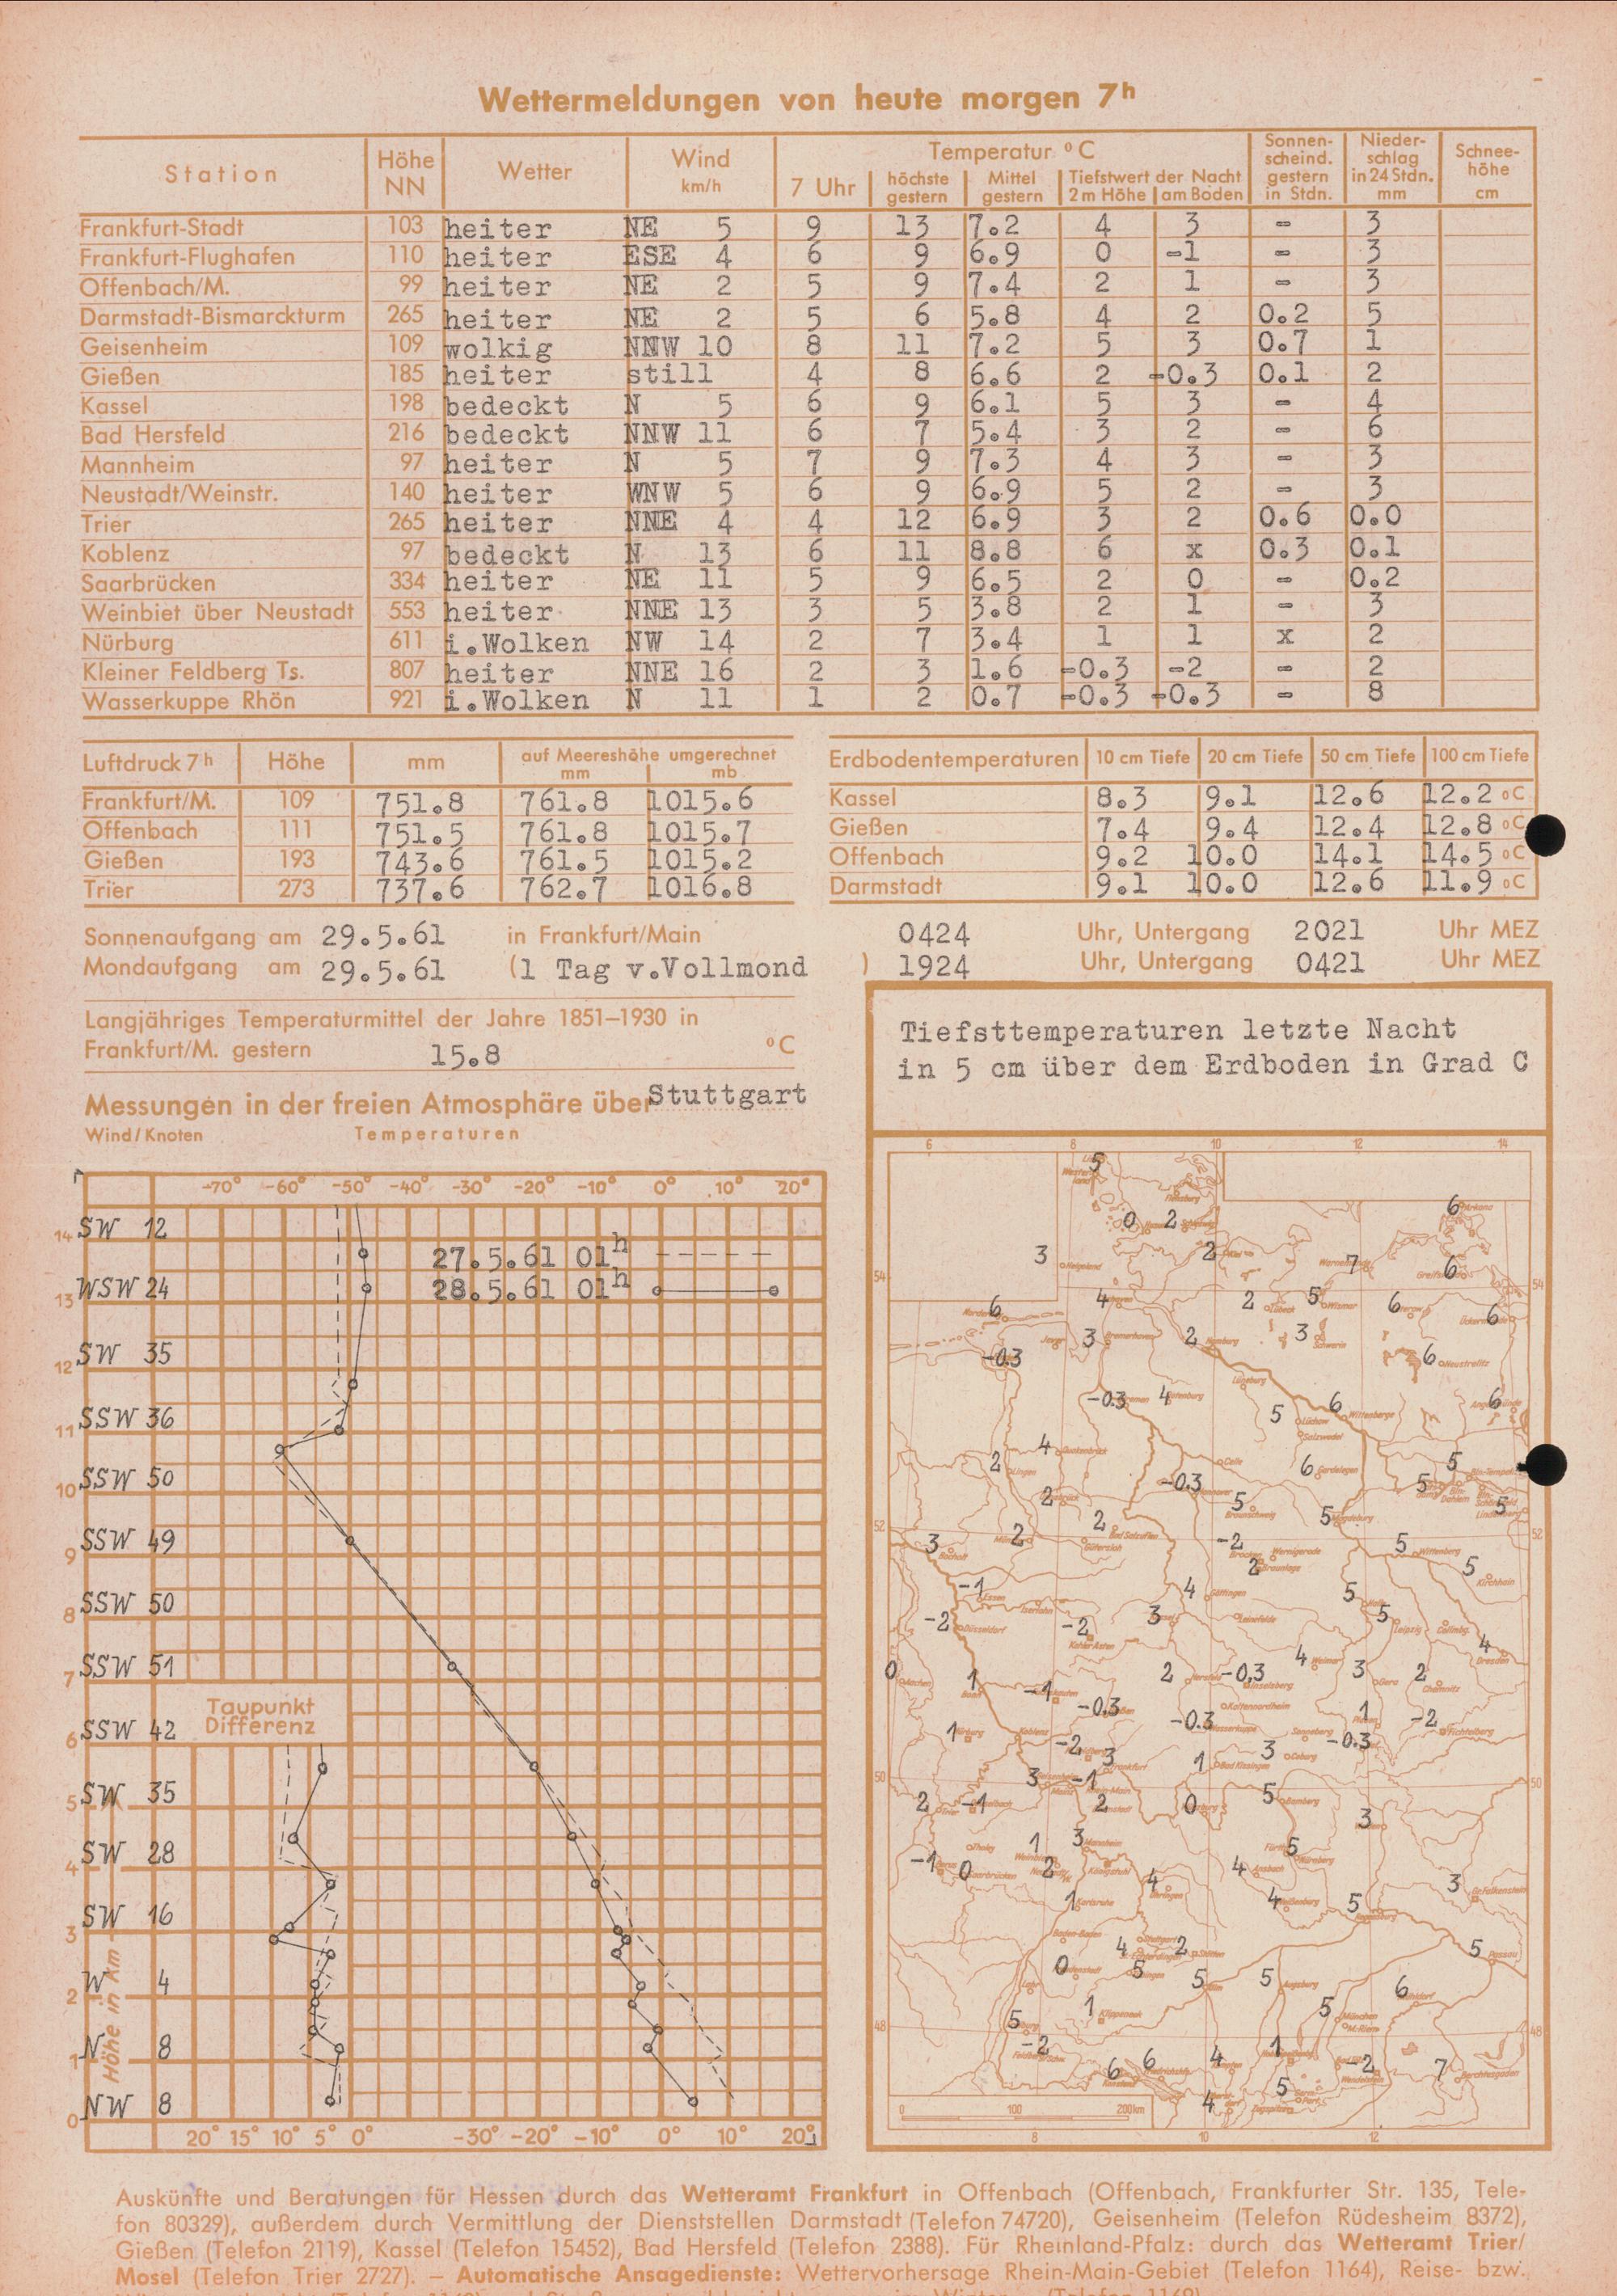 Wettermeldungen von heute morgen 7h
Station Höhe NN Wetter Wind km/h Temperatur °C Sonnenscheind. gestern in Stdn. Niederschlag in 24 Stdn. mm Schneehöhe cm
7 Uhr höchste gestern Mittel gestern Tiefstwert der Nacht 2 m Höhe am Boden
Frankfurt-Stadt 103 heiter NE 5 9 13 7.2 4 3 - 3
Frankfurt-Flughafen 110 heiter ESE 4 6 9 6.9 0 -1 - 3
Offenbach/M. 99 heiter NE 2 5 9 7.4 2 1 - 3
Darmstadt-Bismarckturm 265 heiter NE 2 5 6 5.8 4 2 0.2 5
Geisenheim 109 wolkig NNW 10 8 11 7.2 5 3 0.7 1
Gießen 185 heiter still 4 8 6.6 2 -0.3 0.1 2
Kassel 198 bedeckt N 5 6 9 6.1 5 3 - 4
Bad Hersfeld 216 bedeckt NNW 11 6 7 5.4 3 2 - 6
Mannheim 97 heiter N 5 7 9 7.3 4 3 - 3
Neustadt/Weinstr. 140 heiter WNW 5 6 9 6.9 5 2 - 3
Trier 265 heiter NNE 4 4 12 6.9 3 2 0.6 0.0
Koblenz 97 bedeckt N 13 6 11 8.8 6 x 0.3 0.1
Saarbrücken 334 heiter NE 11 5 9 6.5 2 0 - 0.2
Weinbiet über Neustadt 553 heiter NNE 13 3 5 3.8 2 1 - 3
Nürburg 611 i.Wolken NW 14 2 7 3.4 1 1 x 2
Kleiner Feldberg Ts. 807 heiter NNE 16 2 3 1.6 -0.3 -2 - 2
Wasserkuppe Rhön 921 i.Wolken N 11 1 2 0.7 -0.3 -0.3 - 8
Luftdruck 7h Höhe mm auf Meereshöhe umgerechnet mm mb
Frankfurt/M. 109 751.8 761.8 1015.6
Offenbach 111 751.5 761.8 1015.7
Gießen 193 743.6 761.5 1015.2
Trier 273 737.6 762.7 1016.8
Erdbodentemperaturen 10 cm Tiefe 20 cm Tiefe 50 cm Tiefe 100 cm Tiefe
Kassel 8.3 9.1 12.6 12.2 °C
Gießen 7.4 9.4 12.4 12.8 °C
Offenbach 9.2 10.0 14.1 14.5 °C
Darmstadt 9.1 10.0 12.6 11.9 °C
Sonnenaufgang am 29.5.61 in Frankfurt/Main 0424 Uhr, Untergang 2021 Uhr MEZ
Mondaufgang am 29.5.61 (1 Tag v.Vollmond ) 1924 Uhr, Untergang 0421 Uhr MEZ
Langjähriges Temperaturmittel der Jahre 1851–1930 in
Frankfurt/M. gestern 15.8 °C
Messungen in der freien Atmosphäre über Stuttgart
Wind/Knoten Temperaturen
-70° -60° -50° -40° -30° -20° -10° 0° 10° 20°
14 SW 12
27.5.61 01h
28.5.61 01h
13 WSW 24
12 SW 35
11 SSW 36
10 SSW 50
9 SSW 49
8 SSW 50
7 SSW 51
Taupunkt
Differenz
6 SSW 42
5 SW 35
4 SW 28
3 SW 16
2 W 4
1 N 8
0 NW 8
Höhe in Km
20° 15° 10° 5° 0° -30° -20° -10° 0° 10° 20°
Tiefsttemperaturen letzte Nacht
in 5 cm über dem Erdboden in Grad C
6 8 10 12 14
5
0 2 6
3 2 7 6
54 54
6 4 2 5 6 6
3 2 3
-0.3 6
-0.3 4 5 6 6
4
2 -0.3 6 5 5
2 5 5 5
52 52
3 2 2 -2 5
2 5
-1 4 5
-2 -2 3 5
0 2 -0,3 4 3 2 4
1 -1 -0.3 -0.3 1 -2
1 -2 3 1 3 -0.3
50 50
3 -1 5
2 -1 2 0 3
1 3 5
-1 0 2 4 4 3
1 4 5
4 2 5
0 5 5 5 6
1 5
48 48
5 -2 1 -2 7
6 6 4 5
4
0 100 200km
8 10 12
Auskünfte und Beratungen für Hessen durch das Wetteramt Frankfurt in Offenbach (Offenbach, Frankfurter Str. 135, Tele-
fon 80329), außerdem durch Vermittlung der Dienststellen Darmstadt (Telefon 74720), Geisenheim (Telefon Rüdesheim 8372),
Gießen (Telefon 2119), Kassel (Telefon 15452), Bad Hersfeld (Telefon 2388). Für Rheinland-Pfalz: durch das Wetteramt Trier/
Mosel (Telefon Trier 2727). – Automatische Ansagedienste: Wettervorhersage Rhein-Main-Gebiet (Telefon 1164), Reise- bzw.